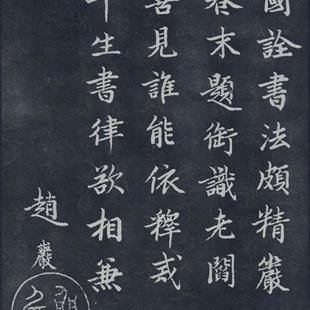 國詮書法頗精嚴
卷末題銜識老閻
善見誰能依釋戒
生書律欲相兼
趙巖